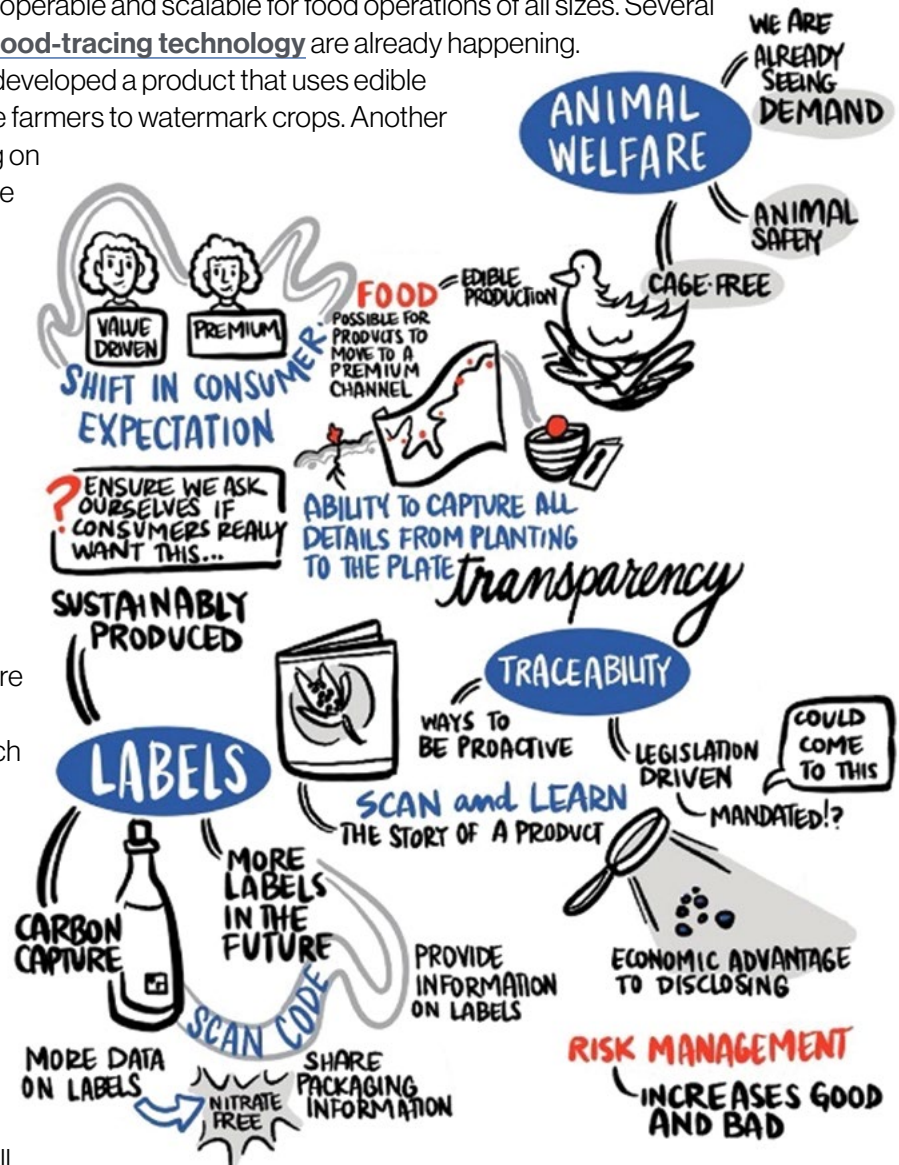 operable and scalable for food operations of all sizes. Several
ood-tracing technology are already happening.
developed a product that uses edible
e farmers to watermark crops. Another
g on
e
WE ARE
ALREADY
SEEING
DEMAND
ANIMAL
WELFARE
ANIMAL
SAFETY
CAGE-FREE
VALUE
DRIVEN
PREMIUM
SHIFT IN CONSUMER
EXPECTATION
FOOD
EDIBLE
PRODUCTION
POSSIBLE FOR
PRODUCTS TO
MOVE TO A
PREMIUM
CHANNEL
? ENSURE WE ASK
OURSELVES IF
CONSUMERS REALLY
WANT THIS...
ABILITY TO CAPTURE ALL
DETAILS FROM PLANTING
TO THE PLATE
transparency
SUSTAINABLY
PRODUCED
re
ch
LABELS
TRACEABILITY
WAYS TO
BE PROACTIVE
LEGISLATION
DRIVEN
MANDATED!?
COULD
COME
TO THIS
SCAN and LEARN
THE STORY OF A PRODUCT
CARBON
CAPTURE
MORE
LABELS
IN THE
FUTURE
SCAN CODE
PROVIDE
INFORMATION
ON LABELS
ECONOMIC ADVANTAGE
TO DISCLOSING
MORE DATA
ON LABELS
NITRATE
FREE
SHARE
PACKAGING
INFORMATION
RISK MANAGEMENT
INCREASES GOOD
AND BAD
ll